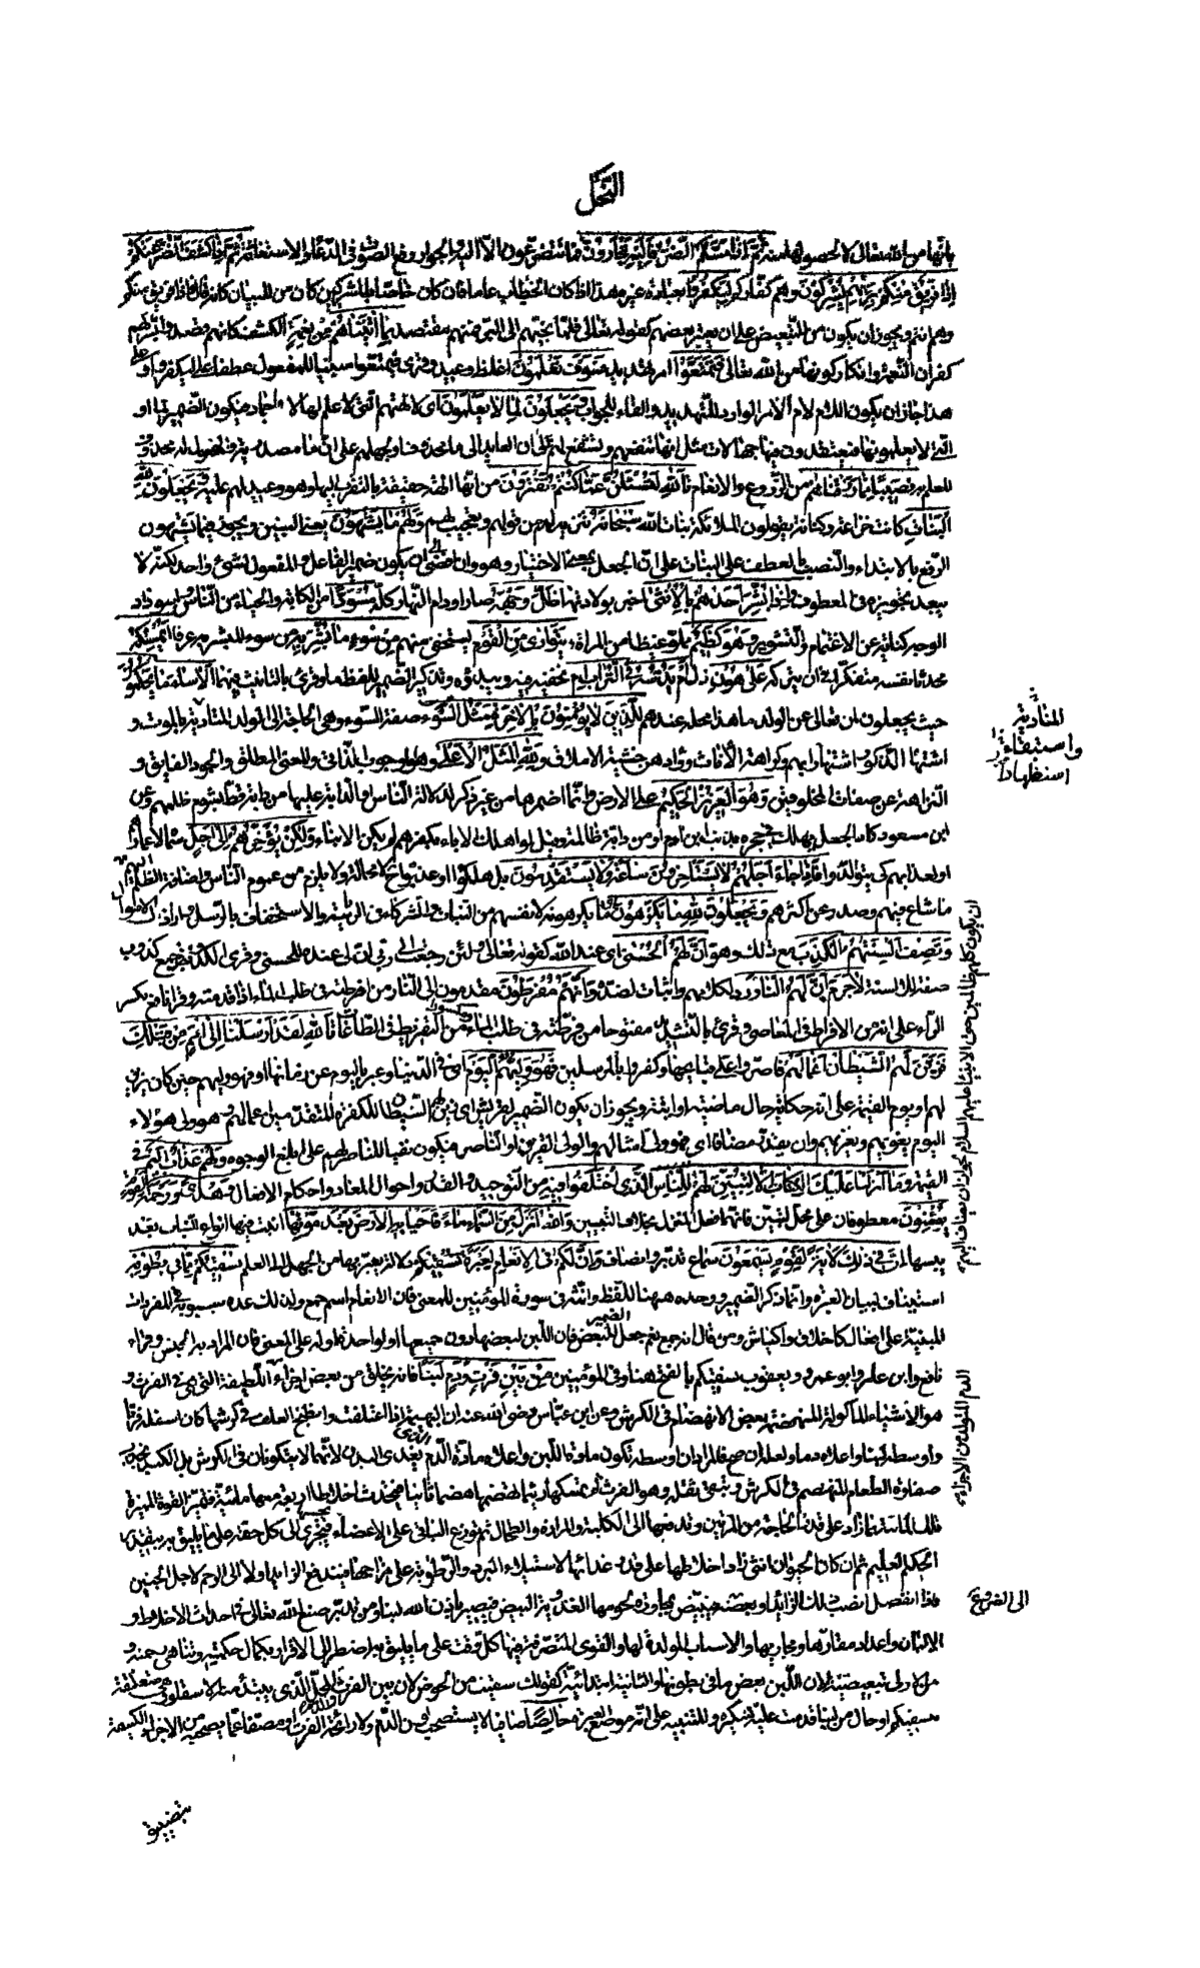 النحل
بأنها من الله تعالى لا لحصولها منه ثم إذا مسكم الضر فإليه تجأرون فما تتضرعون الا اليه والجوار رفع الصوت في الدعاء والاستغاثة ثم إذا كشف الضر عنكم
إذا فريق منكم بربهم يشركون وهم كفاركم ليكفروا بعبادة غيره هذا اذا كان الخطاب عاما فان كان خاصا بالمشركين كان من للبيان كانه قال فاذا فريق منكم
وهم انتم ويجوز ان يكون من للتبعيض على ان يعتبر بعضهم كقوله تعالى فلما نجيهم الى البر فمنهم مقتصد بما آتيناهم من نعمة الكشف كانهم قصدوا بشركهم
كفران النعمة وانكار كونها من الله تعالى فتمتعوا امر تهديد فسوف تعلمون اغلظ وعيد وقرئ فيمتعوا مبنيا للمفعول عطفا على ليكفروا وعلى
هذا جاز ان يكون اللام لام الأمر الوارد للتهديد والفاء للجواب ويجعلون لما لا يعلمون اى لآلهتهم التى لا علم لها لانها جماد فيكون الضمير لما او
التى لا يعلمونها فيعتقدون فيها جهالات مثل انها تنفعهم وتشفع لهم على ان العايد الى ما محذوف او لجهلهم على ان ما مصدرية والمجعول له محذوف
للعلم به نصيبا مما رزقناهم من الزروع والانعام تالله لتسئلن عما كنتم تفترون من انها آلهة حقيقة بالتقرب اليها وهو وعيد لهم عليه ويجعلون لله
البنات كانت خزاعة وكنانة يقولون الملائكة بنات الله سبحانه تنزيه له من قولهم او تعجب منه ولهم ما يشتهون يعنى البنين ويجوز فيما يشتهون
الرفع بالابتداء والنصب بالعطف على البنات على ان الجعل بمعنى الاختيار وهو وان افضى الى ان يكون ضمير الفاعل والمفعول لشئ واحد لكنه لا
يبعد تجويزه في المعطوف وإذا بشر أحدهم بالأنثى اخبر بولادتها ظل وجهه صار او دام النهار كله مسودا من الكآبة والحياء من الناس واسوداد
الوجه كناية عن الاغتمام والتشوير وهو كظيم مملو غيظا من المرأة يتوارى من القوم يستخفى منهم من سوء ما بشر به من سوء المبشر به عرفا أيمسكه
محدثا نفسه متفكرا في ان يتركه على هون ذل أم يدسه في التراب ام يخفيه فيه ويئده وتذكير الضمير للفظ ما وقرئ بالتانيث فيهما ألا ساء ما يحكمون
حيث يجعلون لمن تعالى عن الولد ما هذا محله عندهم للذين لا يؤمنون بالآخرة مثل السوء صفة السوء وهى الحاجة الى الولد المنادية بالموت و
اشتهاء الذكور استظهارا بهم وكراهة الأناث ووأدهن خشية الاملاق ولله المثل الأعلى وهو الوجوب الذاتى والغنى المطلق والجود الفايق و
النزاهة عن صفات المخلوقين وهو العزيز الحكيم على الارض وانما اضمرها من غير ذكر لدلالة الناس والدابة عليها من دابة قط بشوم ظلمهم وعن
ابن مسعود كاد الجعل يهلك في جحره بذنب ابن آدم او من دابة ظالمة وقيل لو اهلك الاباء بكفرهم لم يكن الابناء ولكن يؤخرهم إلى أجل مسمى لاعمارهم
او لعذابهم كى يتوالدوا فإذا جاء أجلهم لا يستأخرون ساعة ولا يستقدمون بل هلكوا او عذبوا ح لا محالة ولا يلزم من عموم الناس واضافة الظلم اليهم
ما شاع فيهم وصدر عن اكثرهم ويجعلون لله ما يكرهون ما يكرهونه لانفسهم من البنات والشركاء في الرئاسة والاستخفاف بالرسل واراذل الاموال
وتصف ألسنتهم الكذب مع ذلك وهو أن لهم الحسنى اى عند الله كقوله تعالى ولئن رجعت الى ربى ان لى عنده للحسنى وقرئ الكذب جمع كذوب
صفة للالسنة لا جرم أن لهم النار رد لكلامهم واثبات لضده وأنهم مفرطون مقدمون الى النار من افرطته في طلب الماء اذا قدمته وقرأ نافع بكسر
الراء على انه من الافراط في المعاصى وقرئ بالتشديد مفتوحا من فرطته في طلب الماء ومكسورا من التفريط في الطاعات تالله لقد أرسلنا إلى أمم من قبلك
فزين لهم الشيطان أعمالهم فاصروا على قبايحها وكفروا بالمرسلين فهو وليهم اليوم اى في الدنيا وعبر باليوم عن زمانها او فهو وليهم حين كان يزين
لهم او يوم القيمة على انه حكاية حال ماضية او آتية ويجوز ان يكون الضمير لقريش اى زين لهم الشيطان للكفرة المتقدمين اعمالهم وهو ولى هؤلاء
اليوم يغويهم ويغريهم وان يقدر مضاف اى فهو ولى امثالهم والولى القرين او الناصر فيكون نفيا للناصر لهم على ابلغ الوجوه ولهم عذاب أليم في
القيمة وما أنزلنا عليك الكتاب إلا لتبين لهم للناس الذي اختلفوا فيه من التوحيد والقدر واحوال المعاد واحكام الافعال وهدى ورحمة لقوم
يؤمنون معطوفان على محل لتبين فانهما فعلا المنزل بخلاف التبيين والله أنزل من السماء ماء فأحيا به الأرض بعد موتها انبت فيها انواع النبات بعد
يبسها إن في ذلك لآية لقوم يسمعون سماع تدبر وانصاف وإن لكم في الأنعام لعبرة دلالة يعبر بها من الجهل الى العلم نسقيكم مما في بطونه
استيناف لبيان العبرة وانما ذكر الضمير ووحده ههنا للفظ وانثه في سورة المؤمنين للمعنى فان الانعام اسم جمع ولذلك عده سيبويه في المفردات
المبنية على افعال كاخلاق واكياش ومن قال انه جمع نعم جعل الضمير للبعض فان اللبن لبعضها دون جميعها او لواحده او له على المعنى فان المراد به الجنس وقرء
نافع وابن عامر وابو عمرو ويعقوب نسقيكم بالفتح هنا وفي المؤمنين من بين فرث ودم لبنا فانه يخلق من بعض اجزاء الدم اللطيفة التى في الفرث و
هو الأشياء المأكولة المنهضمة بعض الانهضام في الكرش وعن ابن عباس رضى الله عنه ان البهيمة اذا اعتلفت وانطبخ العلف في كرشها كان اسفله فرثا
واوسطه لبنا واعلاه دما ولعله ان صح فالمراد ان اوسطه يكون مادة اللبن واعلاه مادة الدم الذى يغذى البدن لانهما لا يتكونان في الكرش بل الكبد يجذب
صفاوة الطعام المنهضم في الكرش ويبقى ثفله وهو الفرث ثم يمسكها ريثما يهضمها هضما ثانيا فيحدث اخلاطا اربعة معها مائية فتميز القوة المميزة
تلك المائية بما زاد على قدر الحاجة من المرتين وتدفعها الى الكلية والمرارة والطحال ثم توزع الباقى على الاعضاء بحسبها فيجرى الى كل حقه على ما يليق به بتقدير
الحكيم العليم ثم ان كان الحيوان انثى زاد اخلاطها على قدر غذائها لاستيلاء البرد والرطوبة على مزاجها فيندفع الزايد اولا الى الرحم لاجل الجنين
فاذا انفصل انصب ذلك الزائد او بعضه الى الضروع فيبيض بمجاورة لحومها الغددية البيض فيصير باذن الله لبنا ومن تدبر صنع الله تعالى في احداث الاخلاط و
الالبان واعداد مقارها ومجاريها والاسباب المولدة لها والقوى المتصرفة فيها كل وقت على ما يليق به اضطر الى الاقرار بكمال حكمته وتناهى رحمته و
من الاولى تبعيضية لان اللبن بعض ما في بطونها والثانية ابتدائية كقولك سقيت من الحوض لان بين الفرث والدم المحل الذى يبتدأ منه الاسقاء وهى متعلقة
بنسقيكم او حال من لبنا قدمت عليه لتنكيره وللتنبيه على انه موضع العبرة خالصا صافيا لا يستصحب لون الدم ولا رائحة الفرث او مصفى عما يصحبه من الاجزاء الكثيفة
المنادية
واستبقاء
استظهارا
ان يكون كلهم ظالمين حتى الانبيا عليهم السلام لجواز ان يضاف اليهم
الدم المتولد من الاجزاء
الى الضروع
بتضييق